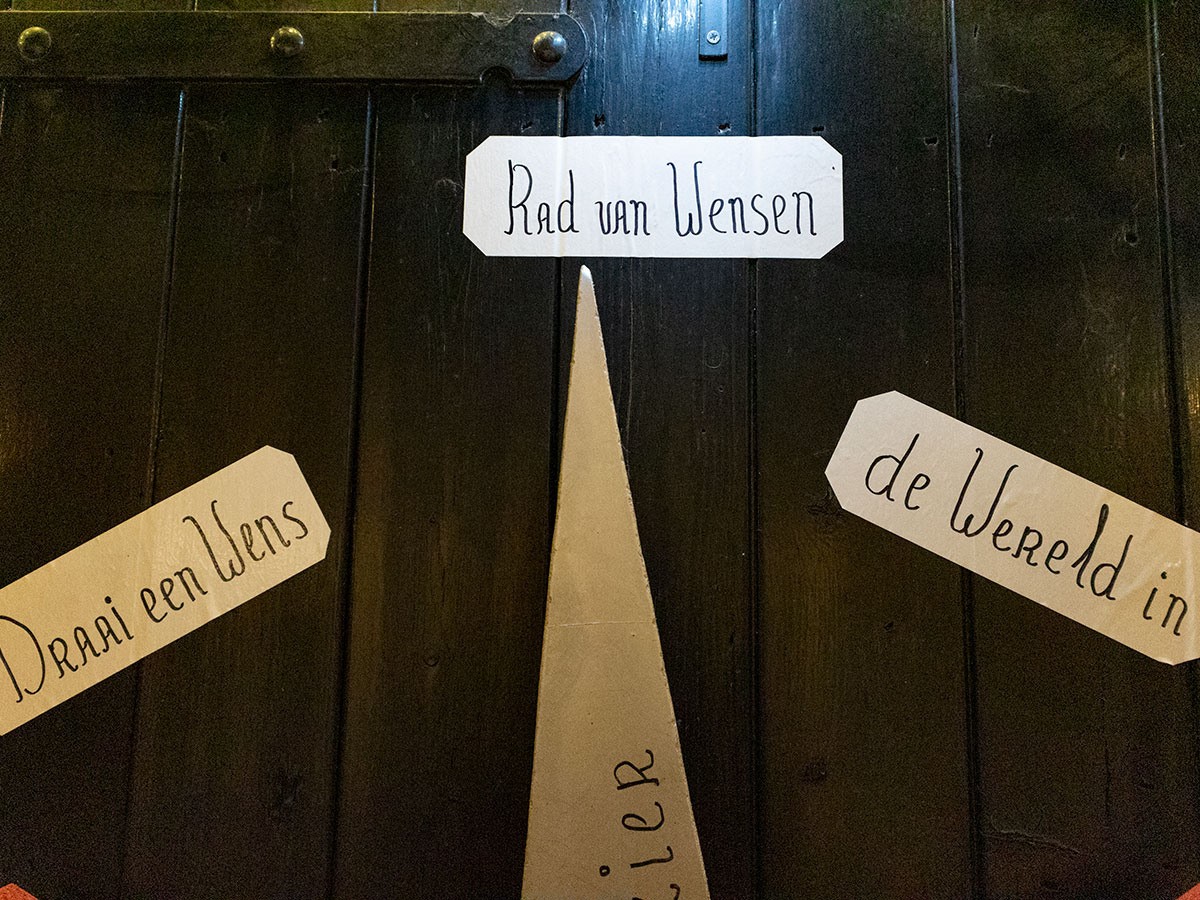 Rad van Wensen
Draai een Wens
de Wereld in
ier